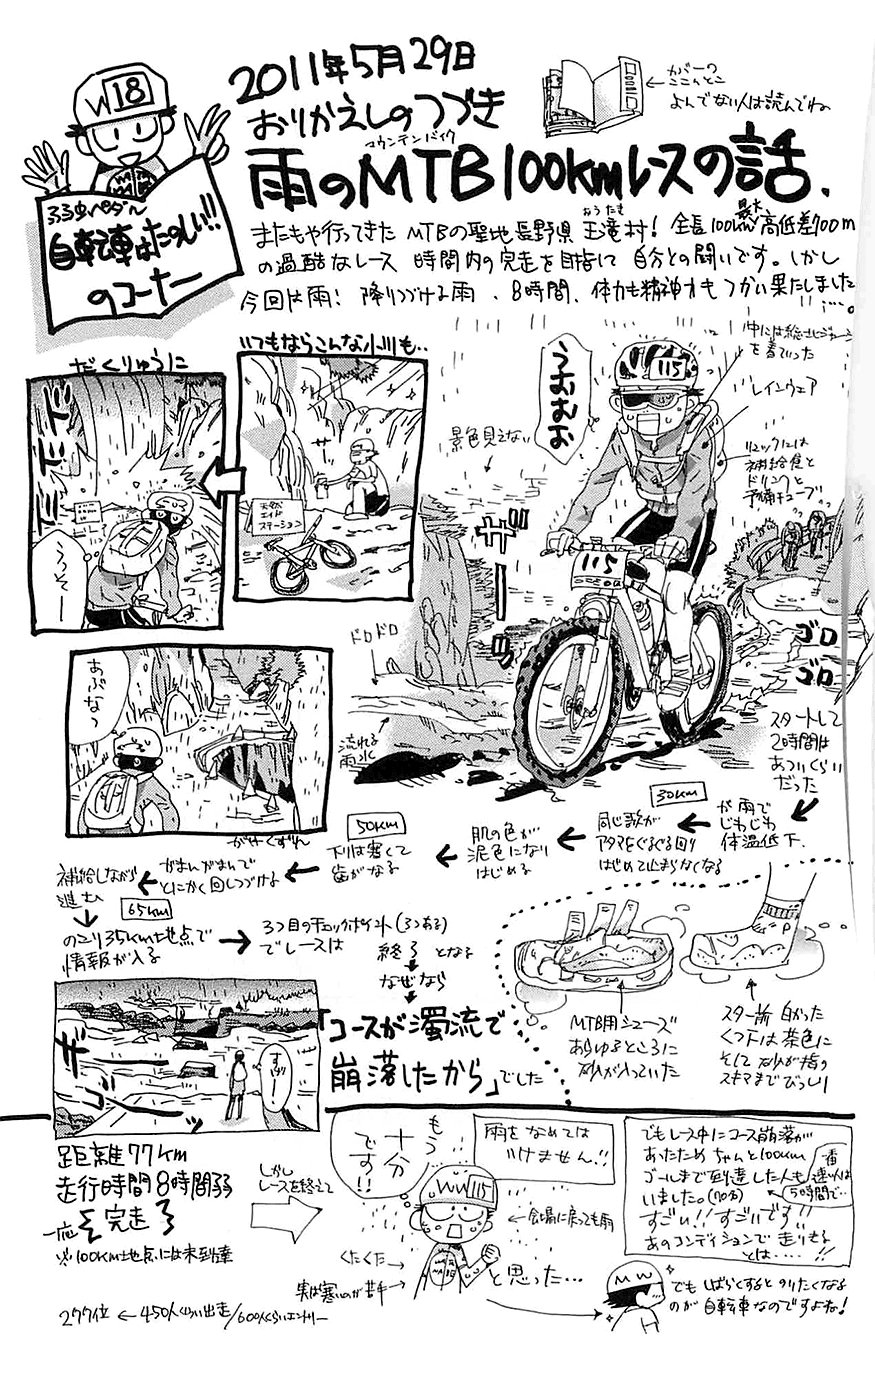 2011年5月29日
おりかえしのつづき
マウンテンバイク
雨のMTB100kmレースの話、
カバーの
ここんとこ
よんでない人は読んでね
W18
弱虫ペダル
自転車はたのしい!!
のコーナー
またもや行ってきた MTBの聖地長野県 王滝村! 全長100km 最大高低差700m
おうたき
の過酷なレース 時間内の完走を目指して 自分との闘いです。しかし
今回は雨! 降りつづける雨、8時間、体力も精神力もつかい果たしました
…。
いつもならこんな小川も‥
天然
エイド
ステーション
だくりゅうに
ドドドド
うっそー
うおむお
115
115
景色見えない
ザーッ
中には総北ジャージ
を着ていった
レインウェア
リュックには
補給食と
ドリンクと
予備チューブ
ゴロ
ゴロ
ドロドロ
流れる
雨水
あぶなっ
がけくずれ
スタートして
2時間は
あついくらい
だった
が 雨で
じわじわ
体温低下、
30km
同じ歌が
アタマをぐるぐる回り
はじめて止まらなくなる
肌の色が
泥色になり
はじめる
50km
下りは寒くて
歯がなる
がまんがまんで
とにかく回しつづける
補給しながら
進む
65km
のこり35km地点で
情報が入る
3つ目のチェックポイント(3つある)
でレースは
終了 となる
なぜなら
「コースが濁流で
崩落したから」でした
MTB用シューズ
あらゆるところに
砂が入っていた
スタート前 白かった
くつ下は茶色に
そして 砂が指の
スキマまでびっしり
ザーッ
距離77km
走行時間8時間弱
一応 完走
※100km地点には未到達
277位 ← 450人くらい出走/600人くらいエントリー
しかし
レースを終えて
もう
十分
です!!
WW115
雨をなめては
いけません!!
←会場に戻っても雨
くたくた→
実は寒いのが苦手→
と思った…
でもレース中にコース崩落が
あったため ちゃんと100km
ゴールまで到達した人も
いました。(70分)
一番
速い人は
5時間で…
すごい!! すごいです!!
あのコンディションで 走りきる
とは……!!
MW
でも しばらくすると のりたくなる
のが 自転車なのですよね!